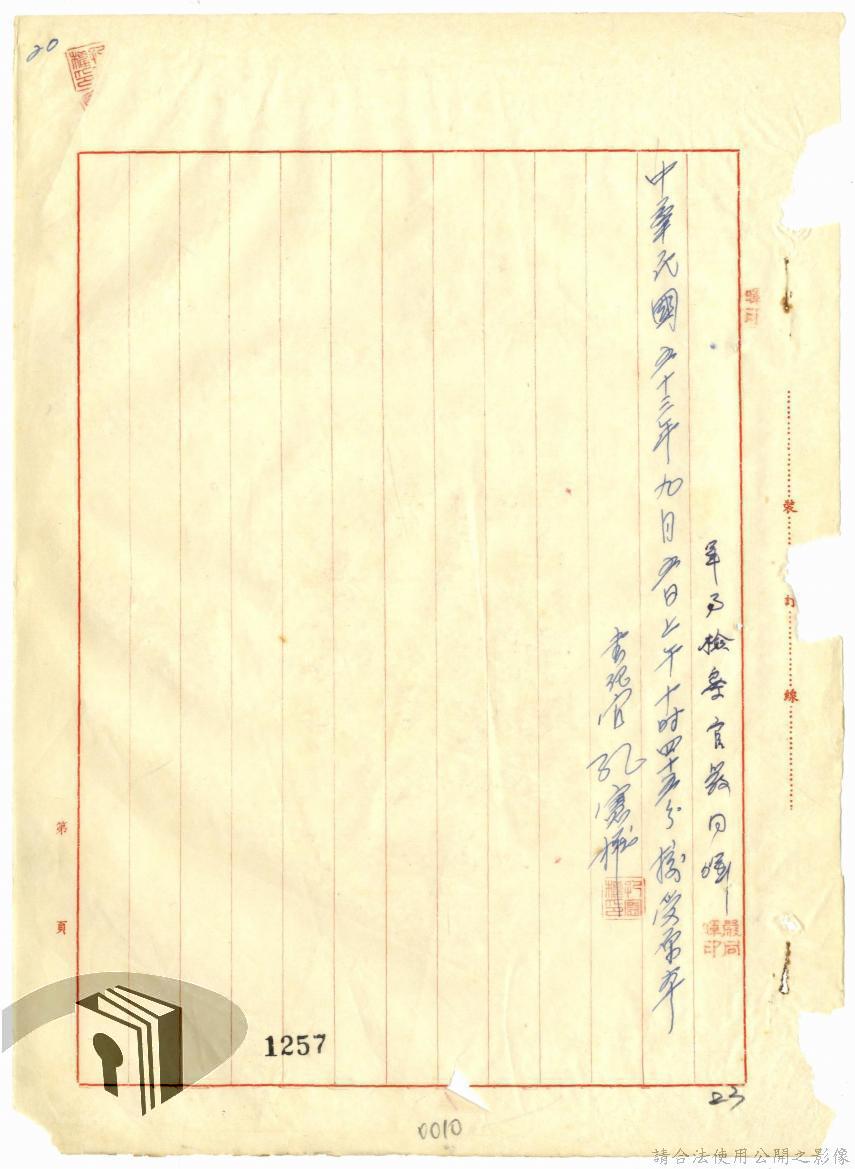 20
軍事檢察官嚴同輝
嚴同
輝印
中華民國五十三年九月五日上午十時四十五分接受原本
書記官 孔憲權
裝
訂
線
第
頁
1257
23
0010
請合法使用公開之影像